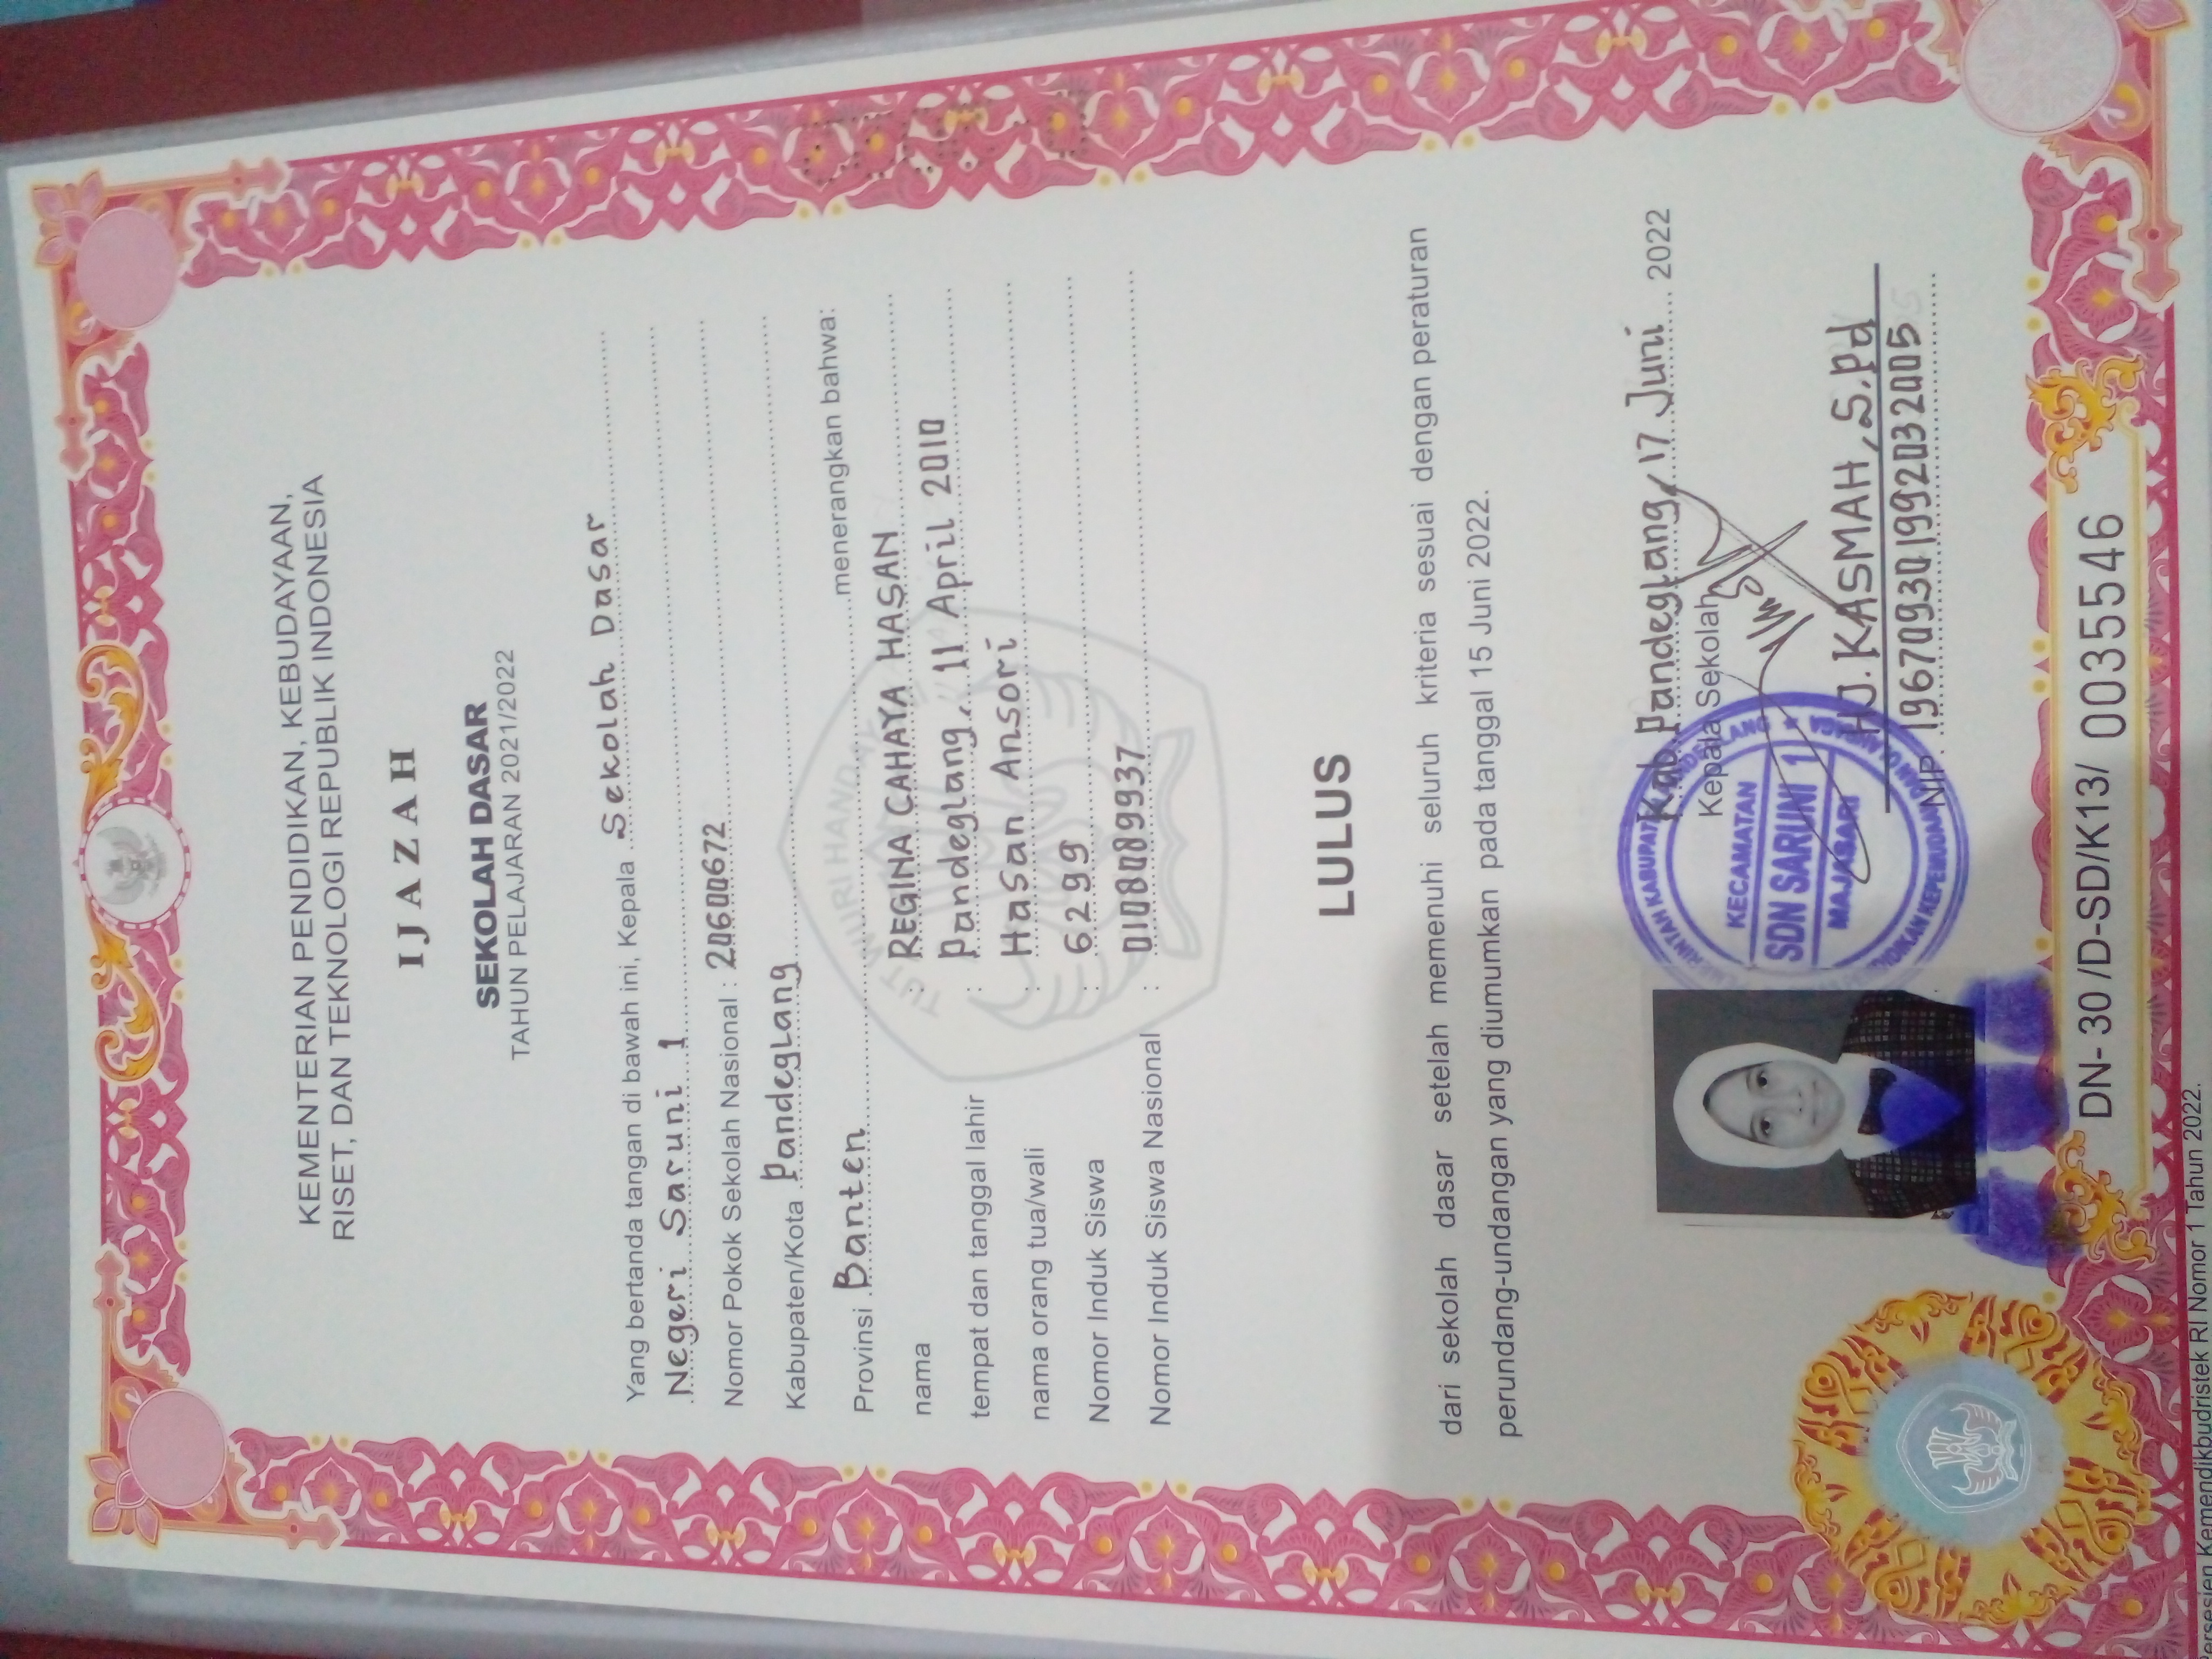 KEMENTERIAN PENDIDIKAN, KEBUDAYAAN,
RISET, DAN TEKNOLOGI REPUBLIK INDONESIA
IJAZAH
SEKOLAH DASAR
TAHUN PELAJARAN 2021/2022
Yang bertanda tangan di bawah ini, Kepala Sekolah Dasar
Negeri Saruni 1
Nomor Pokok Sekolah Nasional : 20600672
Kabupaten/Kota Pandeglang
Provinsi Banten menerangkan bahwa:
TUT WURI HANDAYANI
nama : REGINA CAHAYA HASAN
tempat dan tanggal lahir : Pandeglang, 11 April 2010
nama orang tua/wali : Hasan Ansori
Nomor Induk Siswa : 6299
Nomor Induk Siswa Nasional : 0108089937
LULUS
dari sekolah dasar setelah memenuhi seluruh kriteria sesuai dengan peraturan
perundang-undangan yang diumumkan pada tanggal 15 Juni 2022.
Kab. Pandeglang, 17 Juni 2022
Kepala Sekolah,
KECAMATAN
SDN SARUNI 1
MAJASARI
HJ. KASMAH, S.Pd
NIP. 196709301992032005
DN- 30 /D-SD/K13/ 0035546
Persesjen Kemendikbudristek RI Nomor 1 Tahun 2022.